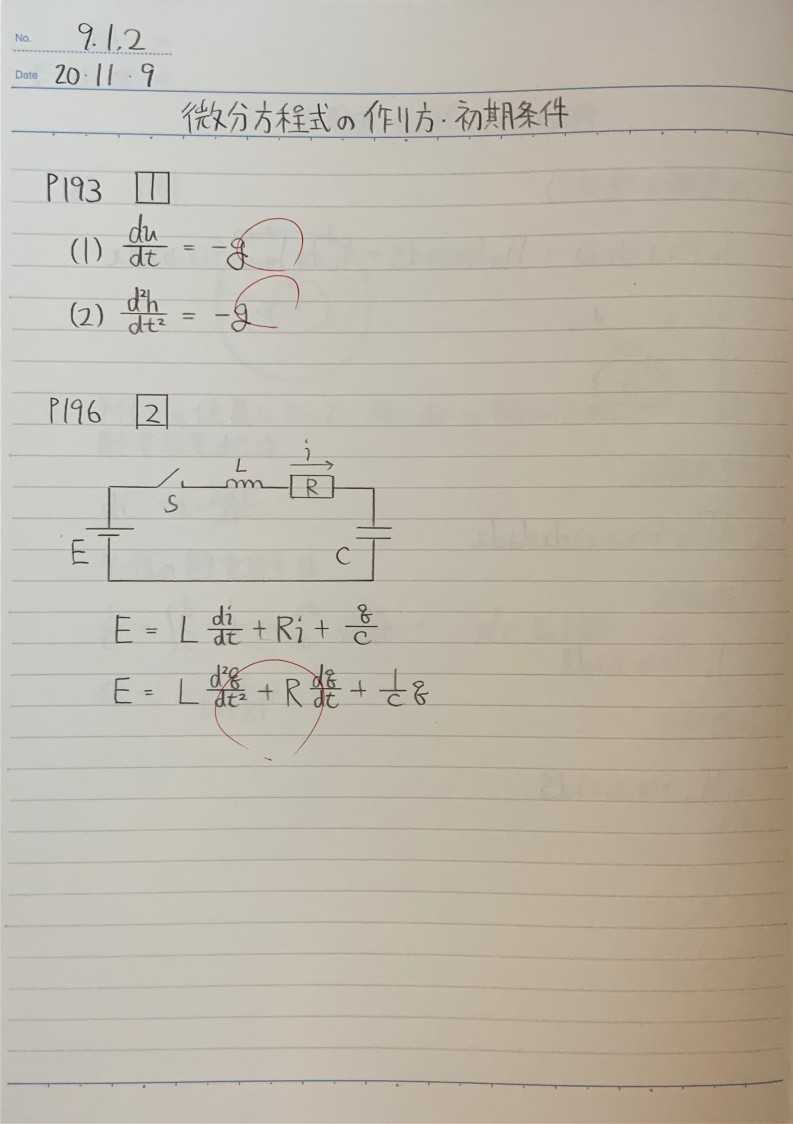 No. 9.1.2
Date 20・11・9
微分方程式の作り方・初期条件
P193 1
(1) du/dt = -g
(2) d²h/dt² = -g
P196 2
i
L
R
S
E
C
E = L di/dt + Ri + q/C
E = L d²q/dt² + R dq/dt + 1/C q